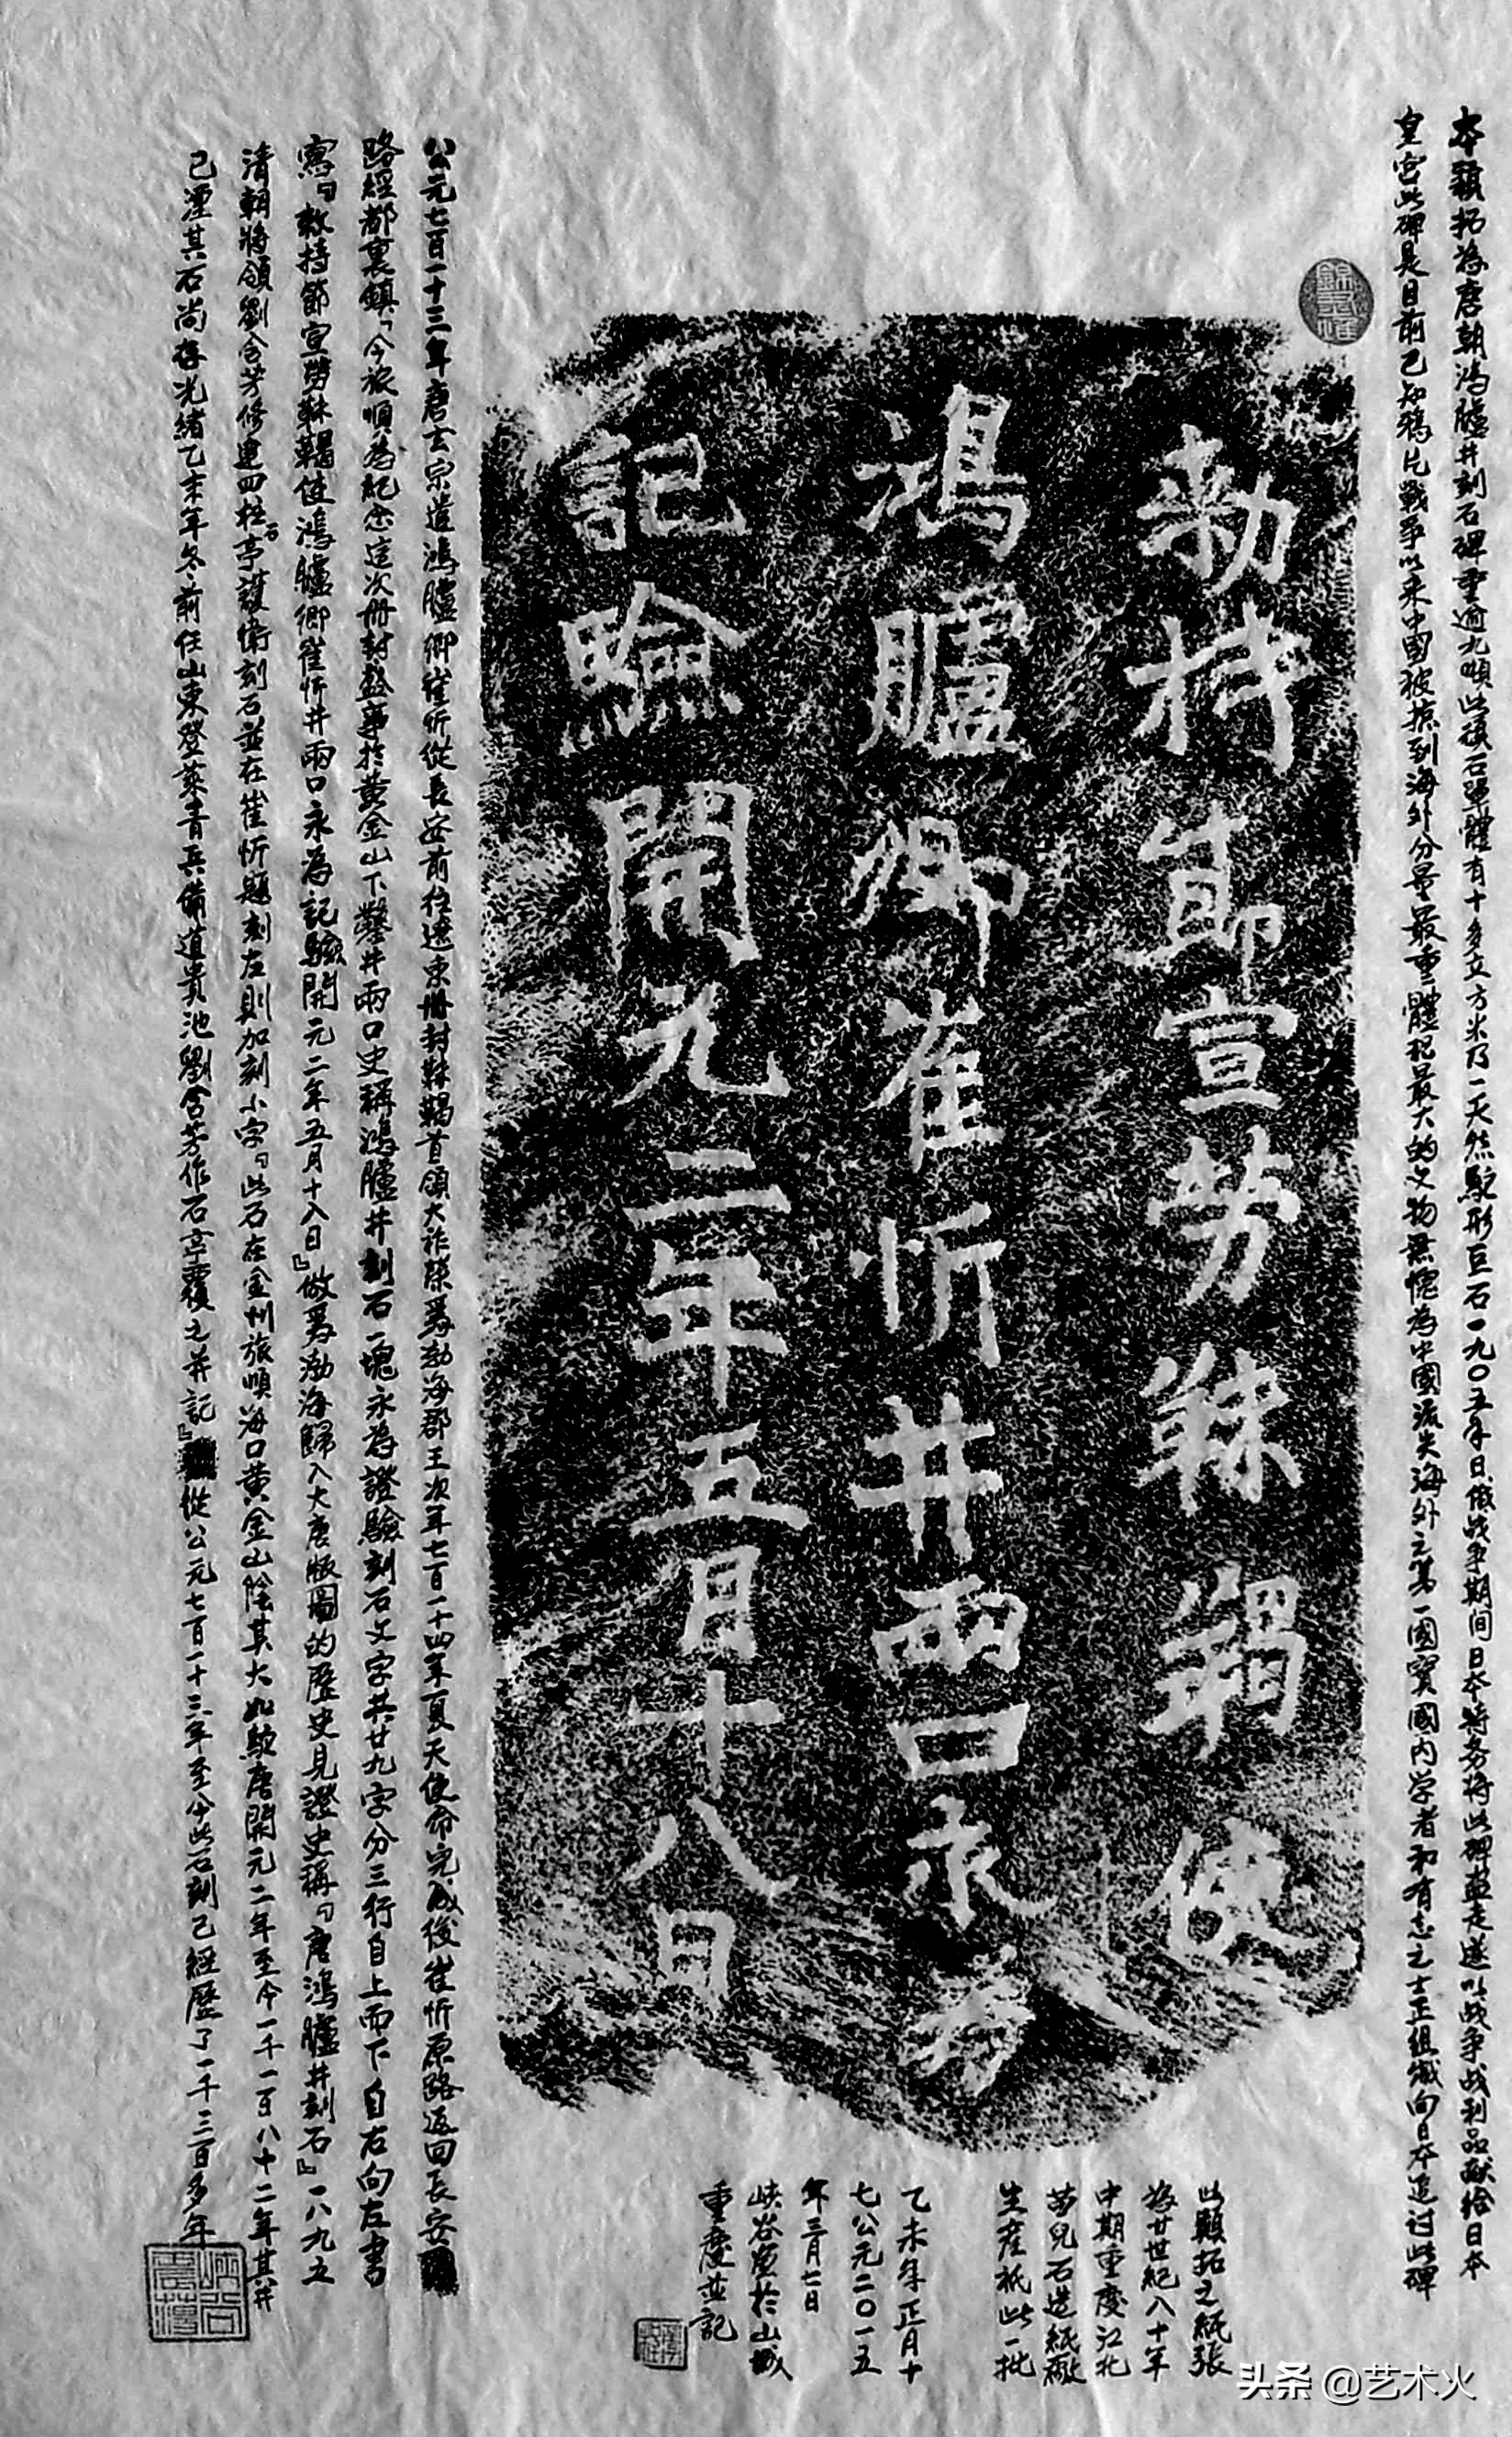 本顆拓為唐朝鴻臚井刻石碑重逾九噸此積石單體有十多立方米乃一天然駝形巨石一九〇五年日俄战争期间日本特务将此碑盗走遂以战争战利品献给日本
皇宫此碑是目前已知鴉片戰爭以来中国被掠到海外分量最重體积最大的文物無愧為中國流失海外之第一國寶國内学者和有志之士正組織向日本追讨此碑
勅持節宣勞靺鞨使
鴻臚卿崔忻井兩口永為
記驗開元二年五月十八日
公元七百一十三年唐玄宗遣鴻臚卿崔忻從長安前往遼東册封靺鞨首領大祚榮爲渤海郡王次年七百一十四年夏天使命完成後崔忻原路返回長安
路經都裏鎮「今旅順為紀念這次册封盛事於黄金山下鑿井兩口史稱鴻臚井刻石一塊永為證驗刻石文字共廿九字分三行自上而下自右向左書
寫『敕持節宣勞靺鞨使鴻臚卿崔忻井兩口永為記驗開元二年五月十八日』做爲渤海歸入大唐版圖的歷史見證史稱『唐鴻臚井刻石』一八九五
清朝將領劉含芳修建四柱石亭護衛刻石並在崔忻題刻左則加刻小字『此石在金州旅順海口黄金山陰其大如駝唐開元二年至今一千一百八十二年其井
已湮其石尚存光緒乙未年冬前任山東登萊青兵備道貴池劉含芳作石亭覆之并記』從公元七百一十三年至今此石刻已經歷了一千三百多年
此顆拓之紙張
為廿世紀八十年
中期重慶江北
苗兒石造紙廠
生産祇此一批
乙未年正月十
七公元二〇一五
年三月七日
峡谷 於山城
重慶並記
头条 @艺术火